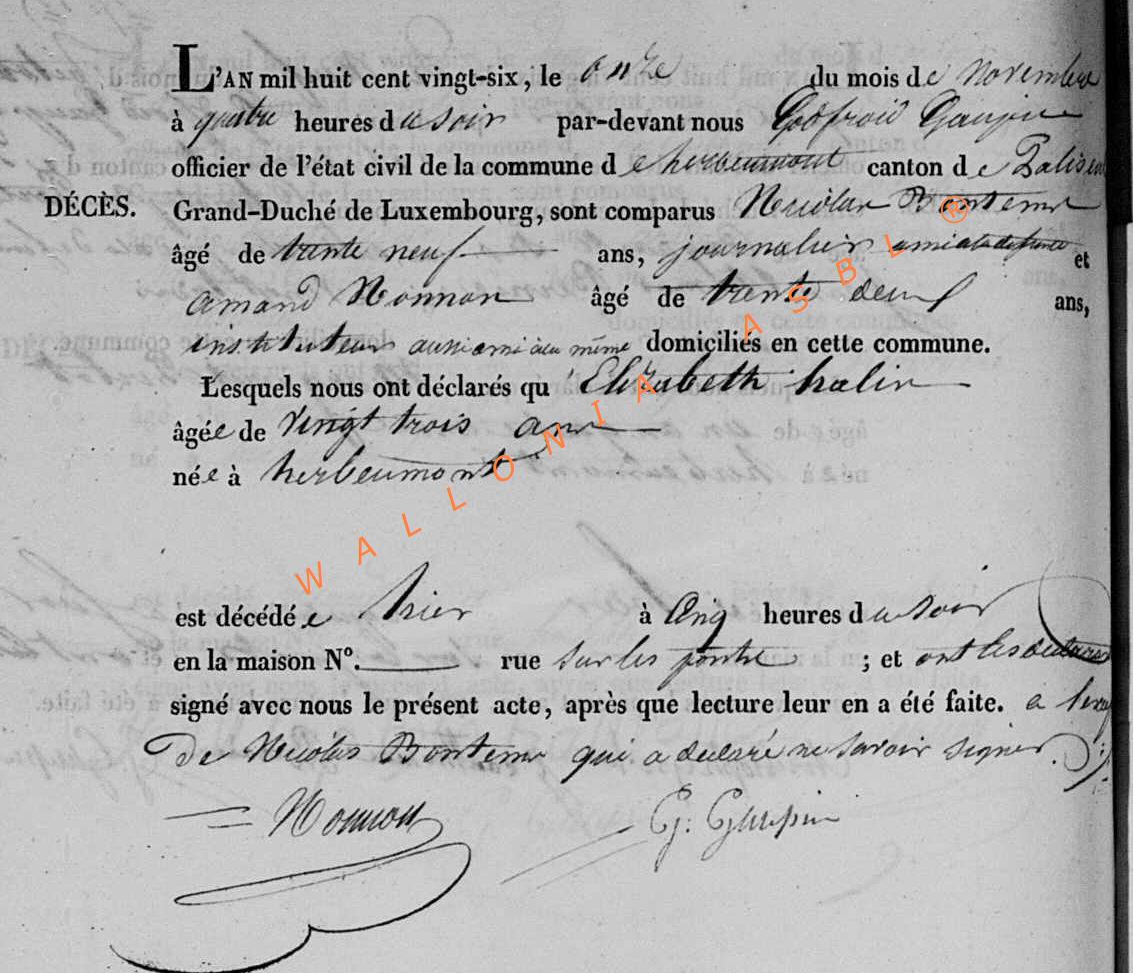 L'AN mil huit cent vingt-six, le onze du mois de Novembre
à quatre heures du soir par-devant nous Godfroid
officier de l'état civil de la commune de herbeumont canton de Paliseu
DÉCÈS. Grand-Duché de Luxembourg, sont comparus Nicolas Bontems
âgé de trente neuf ans, journalier ami de la defunte et
amand Nonnon âgé de trente deux ans,
instituteur aussi ami à la même domiciliés en cette commune.
Lesquels nous ont déclarés qu'Elizabeth halin
âgée de vingt trois ans
née à herbeumont
est décédée hier à Cinq heures du soir
en la maison N°. rue sur les ; et ont les
signé avec nous le présent acte, après que lecture leur en a été faite. a
de Nicolas Bontems qui a declaré ne savoir signer
Nonnon G.
WALLONIA ASBL ®